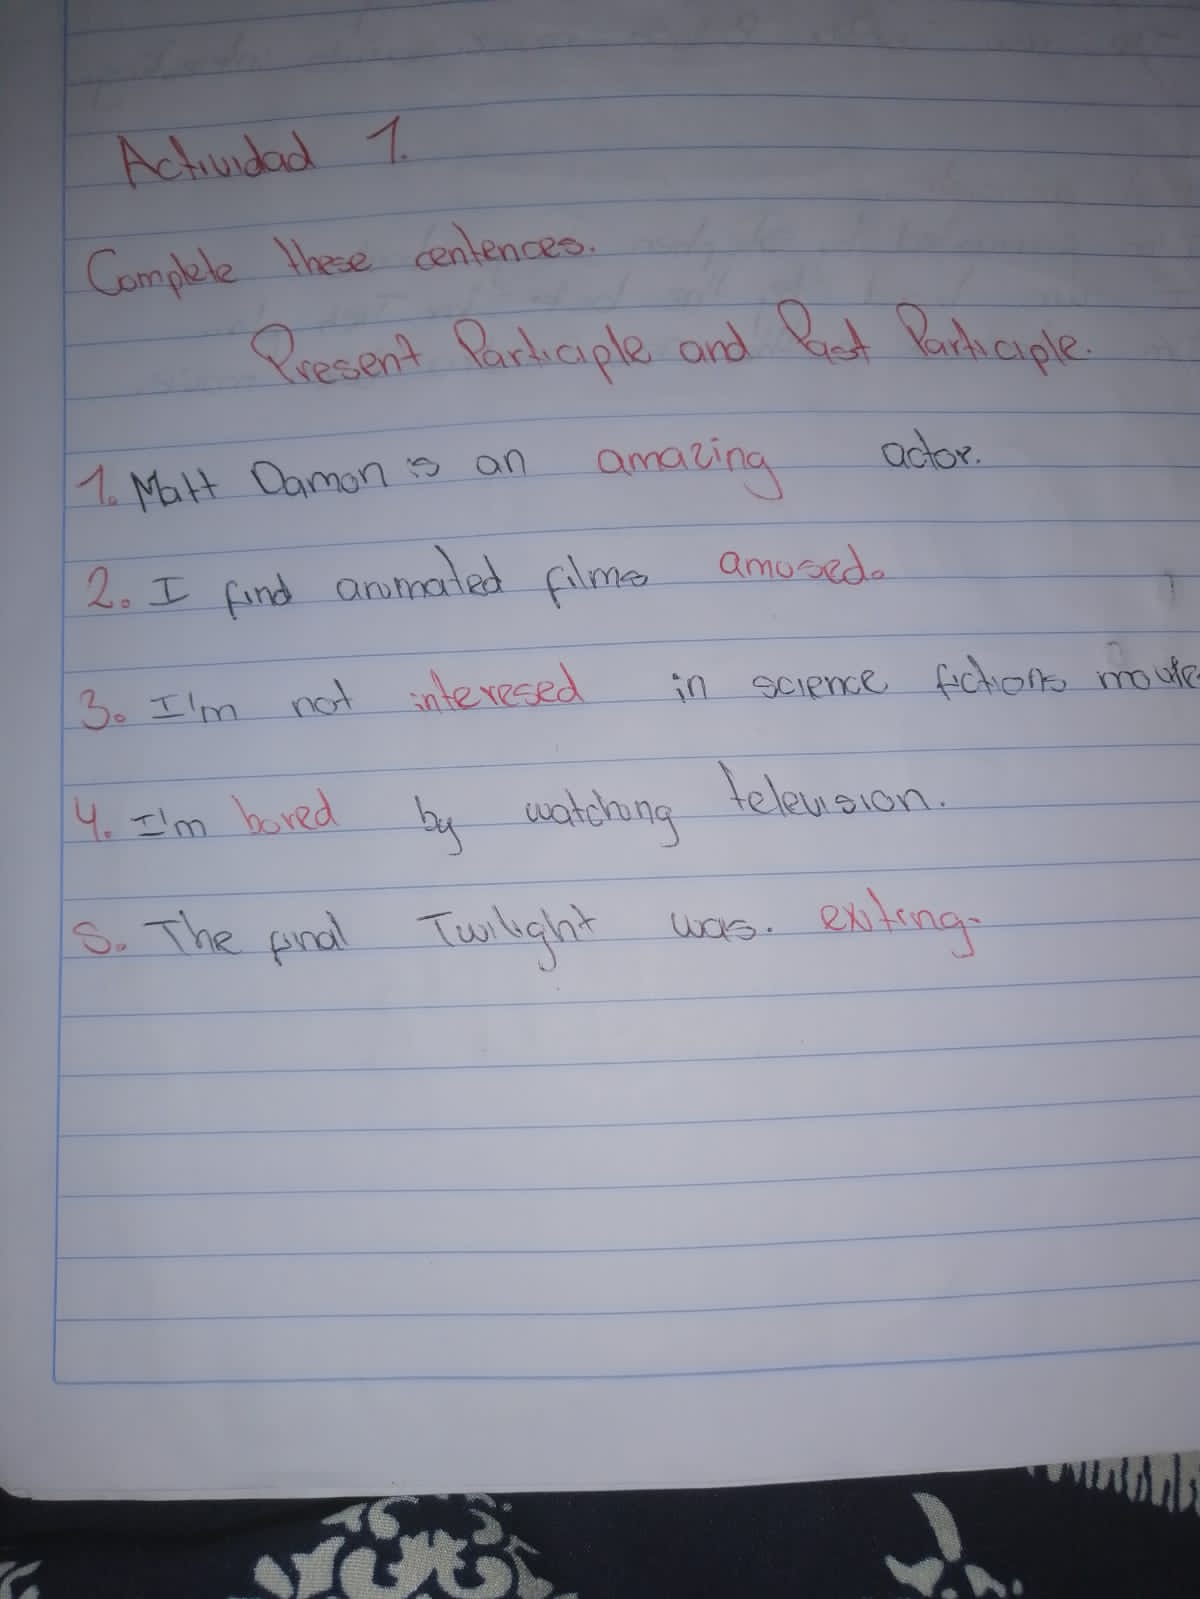 Actividad 1.
Complete these centences.
Present Participle and Past Participle.
1. Matt Damon is an amazing actor.
2. I find animated films amused.
3. I'm not interesed in science fictions movie
4. I'm bored by watching television.
5. The final Twilight was. exiting.